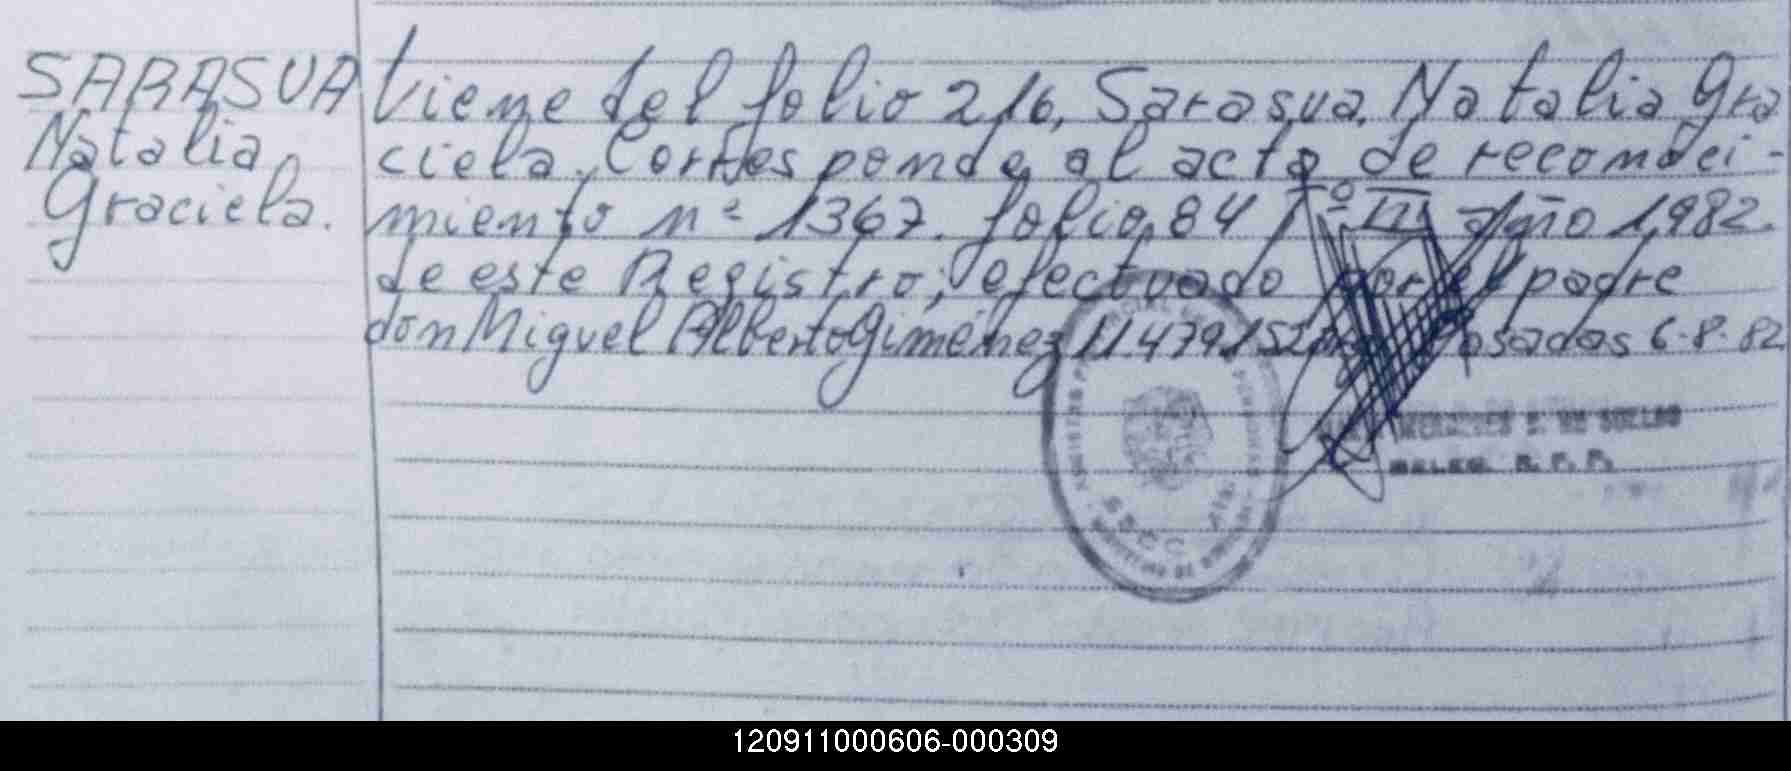 SARASUA
Natalia
Graciela.
Viene del folio 216, Sarasua, Natalia Gra
ciela. Corresponde al acta de reconoci-
miento nº 1367. folio 84 Tº III año 1982.
de este Registro; efectuado por el padre
don Miguel Alberto Giménez 11.479.152 Posadas 6-8-82
120911000606-000309